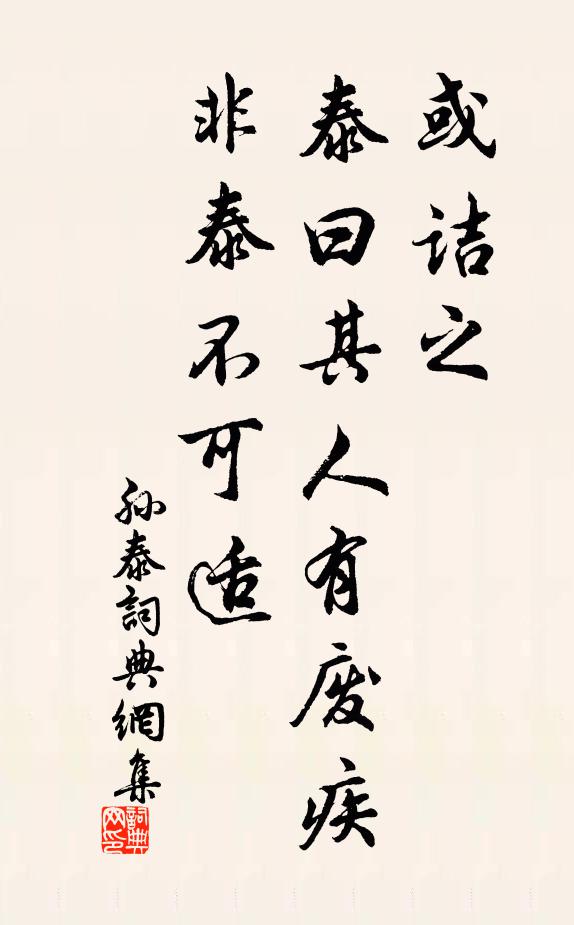 或诘之
泰曰其人有废疾
非泰不可适
孙泰詞典網集
詞典网印